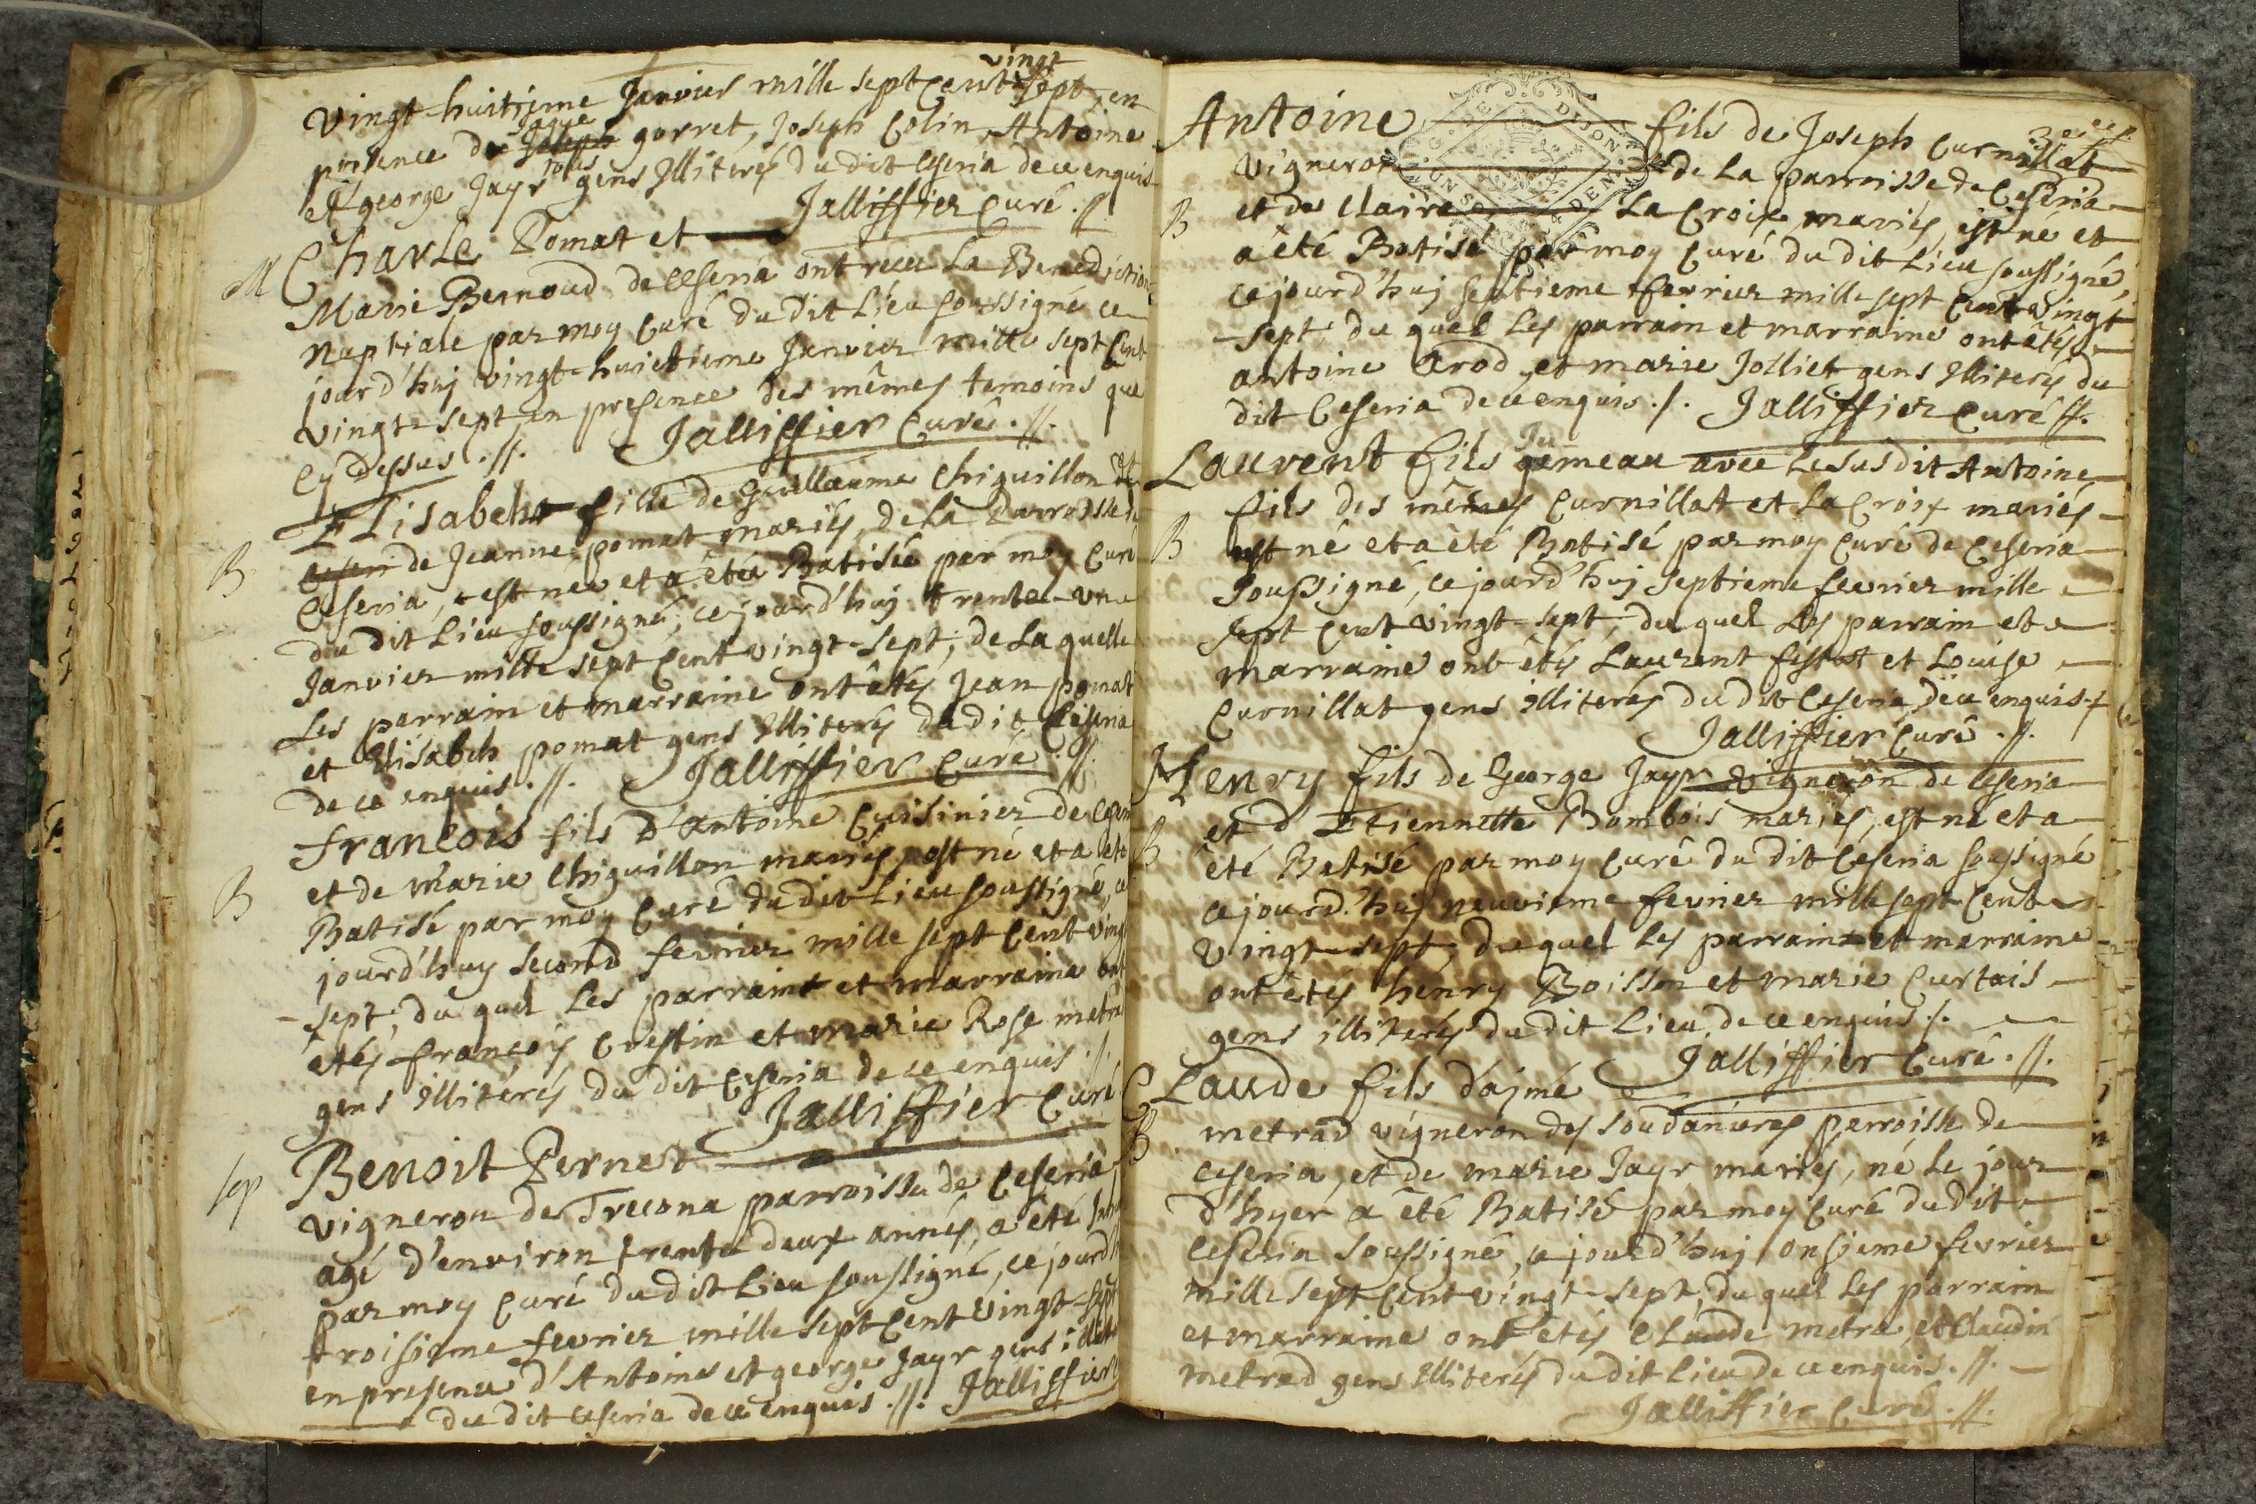 vingt
vingt-huitieme Janvier mille sept Cent sept, en
presence de Joseph gorret, Joseph Colin, Antoine
et george Jayr tous gens Illiterés du dit Ceseria de ce enquis
Jalliffier Curé .//.
M Charle Pomat et
Marie Bernoud de Ceseria ont receu La Benediction
Nuptiale par moy Curé du dit Lieu soussigné ce
jourd'huj vingt-huictieme Janvier mille sept Cent
vingt-sept, en presence des mêmes temoins que
Cy dessus .//. Jalliffier Curé .//.
Elisabeht fille de Guillaume Chiguillon et
B de Jeanne pomat mariés, de La Parroisse de
Ceseria, est née et a été Batisée par moy Curé
du dit Lieu soussigné, ce jourd'huj trente-une
Janvier mille sept Cent vingt-sept; de La quelle
Les parrain et marraine ont êtés Jean pomat
et Elisabeh pomat gens Illiterés du dit Ceseria
de ce enquis .//. Jalliffier Curé .//.
francois fils d'Antoine Cuisinier de
B et de marie Chiguillon mariés, est né et a été
Batisé par moy Curé du dit Lieu soussigné, ce
jourd'huy second fevrier mille sept Cent ving
-sept; du quel Les parraint et marraine ont
êtés francois Crestin et marie Rose metra
gens illiterés du dit Ceseria de ce enquis ./.
Jalliffier Curé
Sep Benoit Pernet
vigneron de Trecona parroisse de Ceseria
agé d'environ trente deux annés, a été
par moy Curé du dit Lieu soussigné, ce jourd'h
troisieme fevrier mille sept Cent vingt-sept
en presence d'Antoine et george Jayr gens
du dit Ceseria de ce enquis .//. Jalliffier
Antoine fils de Joseph Curnillat
vigneron de La parroisse de Ceseria
B et de Claire La Croix mariés, est né et
a été Batisé par moy Curé du dit Lieu soussigné,
ce jourd'huj septieme fevrier mille sept Cent vingt
-sept; du quel Les parrain et marraine ont êtés
antoine Arod, et marie Jolliet gens Illiterés du
dit Ceseria de ce enquis ./. Jalliffier Curé //.
Laurent fils Jumeau avec Le susdit Antoine
fils des mêmes Curnillat et La Croix mariés
B est né et a été Batisé par moy Curé de Ceseria
soussigné, ce jourd'huj septieme fevrier mille
sept Cent vingt-sept, du quel Les parrain et
marraine ont êtés Laurent et Louise
Curnillat gens illiterés du dit Ceseria de ce enquis
Jalliffier Curé .//.
Henry fils de George Jayr vigneron de Ceseria
et d'Etiennette Bombois mariés, est né et a
B été Batisé par moy Curé du dit Ceseria soussigné
ce jourd'huj neuvieme fevrier mille sept Cent
vingt-sept; du quel Les parraint et marraine
ont êtés henry Boisson et marie Curtais
gens illiterés du dit Lieu, de ce enquis ./.
Jalliffier Curé .//.
Claude fils d'ajmé
B metrad vigneron des soudanieres parroisse de
Ceseria, et de marie Jayr mariés, né Le jour
d'hyer a été Batisé par moy Curé du dit
Ceseria soussigné, ce jourd'huj onsieme fevrier
mille sept Cent vingt-sept, du quel Les parrain
et marraine ont êtés Claude metra et Claudin
metrad gens Illiterés du dit Lieu de ce enquis .//.
Jalliffier Curé .//.